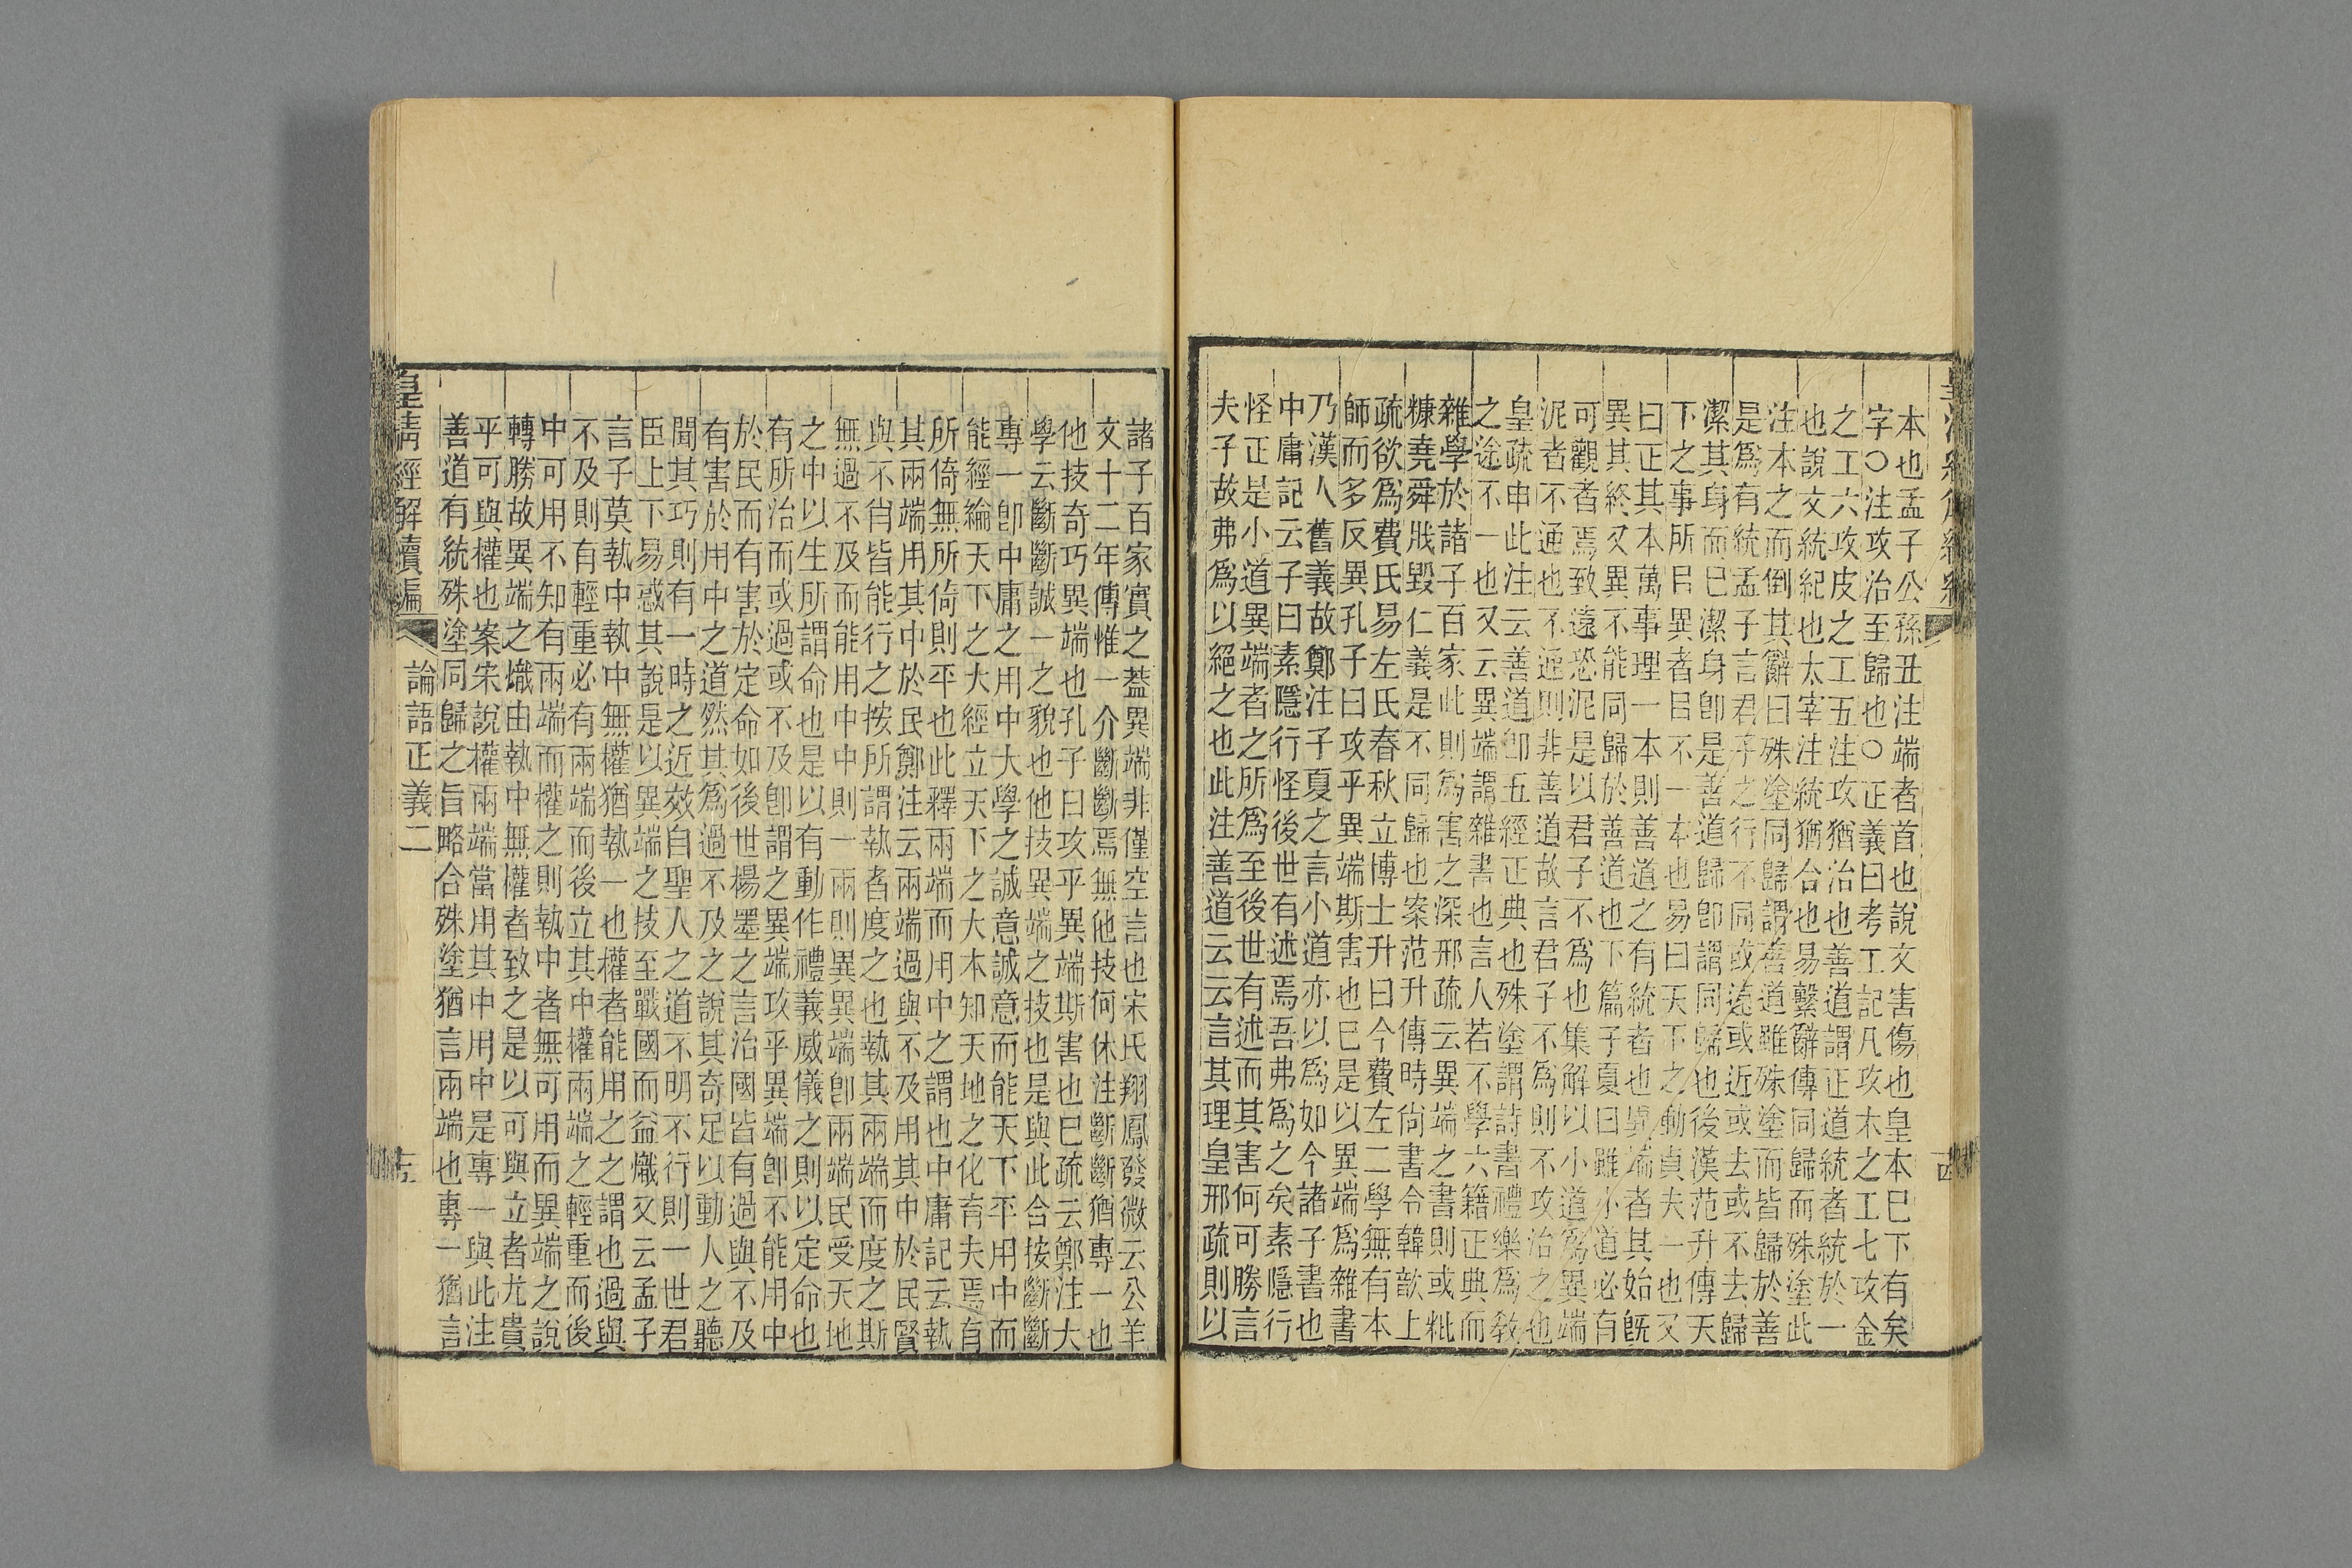 本也孟子公孫丑注端者首也說文害傷也皇本巳下有矣
字○注攻治至歸也○正義曰考工記凡攻木之工七攻金
之工六攻皮之工五注攻猶治也善道謂正道統者統於一
也說文統紀也太宰注統猶合也易繫辭傳同歸而殊塗此
注本之而倒其辭曰殊塗同歸謂善道雖殊塗而皆歸於善
是爲有統孟子言君子之行不同或遠或近或去或不去歸
潔其身而巳潔身卽是善道歸卽謂同歸也後漢范升傳天
下之事所㠯異者㠯不一本也易曰天下之動貞夫一也又
曰正其本萬事理一本則善道之有統者也異端者其始旣
異其終又異不能同歸於善道也下篇子夏曰雖小道必有
可觀者焉致遠恐泥是以君子不爲也集解以小道爲異端
泥者不通也不通則非善道故言君子不爲則不攻治之也
皇疏申此注云善道卽五經正典也殊塗謂詩書禮樂爲敎
之途不一也又云異端謂雜書也言人若不學六籍正典而
雜學於諸子百家此則爲害之深邢疏云異端之書則或粃
糠堯舜戕毀仁義是不同歸也案范升傳時尚書令韓歆上
疏欲爲費氏易左氏春秋立博士升曰今費左二學無有本
師而多反異孔子曰攻乎異端斯害也巳是以異端爲雜書
乃漢人舊義故鄭注子夏之言小道亦以爲如今諸子書也
中庸記云子曰素隱行怪後世有述焉吾弗爲之矣素隱行
怪正是小道異端者之所爲至後世有述而其害何可勝言
夫子故弗爲以絕之也此注善道云云言其理皇邢疏則以
諸子百家實之蓋異端非僅空言也宋氏翔鳳發微云公羊
文十二年傳惟一介斷斷焉無他技何休注斷斷猶專一也
他技奇巧異端也孔子曰攻乎異端斯害也巳疏云鄭注大
學云斷斷誠一之貌也他技異端之技也是與此合按斷斷
專一卽中庸之用中大學之誠意誠意而能天下平用中而
能經綸天下之大經立天下之大本知天地之化育夫焉有
所倚無所倚則平也此釋兩端而用中之謂也中庸記云執
其兩端用其中於民鄭注云兩端過與不及用其中於民賢
與不肖皆能行之按所謂執者度之也執其兩端而度之斯
無過不及而能用中中則一兩則異異端卽兩端民受天地
之中以生所謂命也是以有動作禮義威儀之則以定命也
有所治而或過或不及卽謂之異端攻乎異端卽不能用中
於民而有害於定命如後世楊墨之言治國皆有過與不及
有害於用中之道然其爲過不及之說其奇足以動人之聽
聞其巧則有一時之近效自聖人之道不明不行則一世君
臣上下易惑其說是以異端之技至戰國而益熾又云孟子
言子莫執中執中無權猶執一也權者能用之之謂也過與
不及則有輕重必有兩端而後立其中權兩端之輕重而後
中可用不知有兩端而權之則執中者無可用而異端之說
轉勝故異端之熾由執中無權者致之是以可與立者尤貴
乎可與權也案宋說權兩端當用其中用中是專一與此注
善道有統殊塗同歸之旨略合殊塗猶言兩端也專一猶言
皇清經解續編
論語正義二